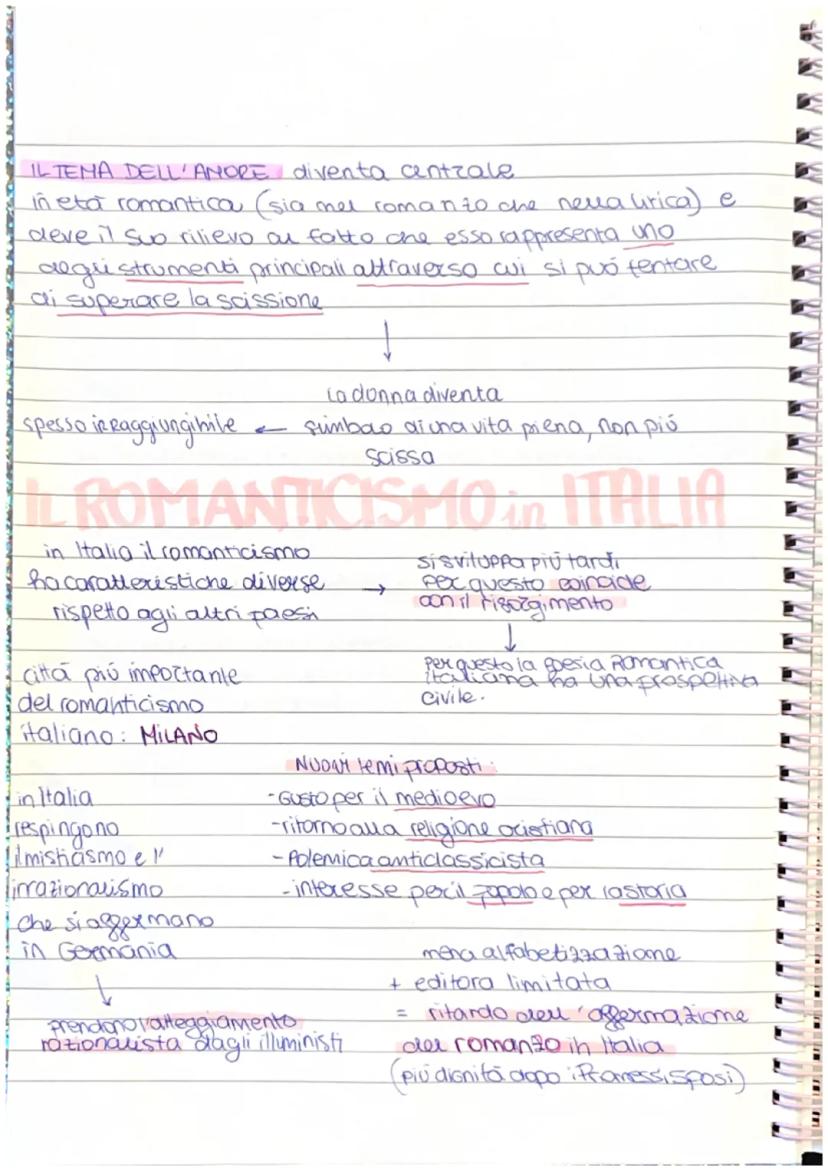 IL TEMA DELL'AMORE diventa centrale
in etá romantica (sia nel romanzo che nella lirica) e
deve il suo rilievo al fatto che esso rappresenta uno
degli strumenti principali attraverso cui si puó tentare
di superare la scissione
la donna diventa
spesso irraggiungibile ← simbolo di una vita piena, non piú
scissa
IL ROMANTICISMO in ITALIA
in Italia il romanticismo
ha caratteristiche diverse →
rispetto agli altri paesi
si sviluppa piú tardi,
per questo coincide
con il risorgimento
per questo la poesia Romantica
italiana ha una prospettiva
civile.
cittá piú importante
del romanticismo
italiano: MILANO
Nuovi temi proposti:
- Gusto per il medioevo
- ritorno alla religione cristiana
- Polemica anticlassicista
- interesse per il popolo e per la storia
in Italia
respingono
il misticismo e l'
irrazionalismo
che si affermano
in Germania
prendono l'atteggiamento
razionalista dagli illuministi
meno alfabetizzazione
+ editora limitata
= ritardo dell'affermazione
del romanzo in Italia
(piú dignitá dopo i Promessi Sposi)